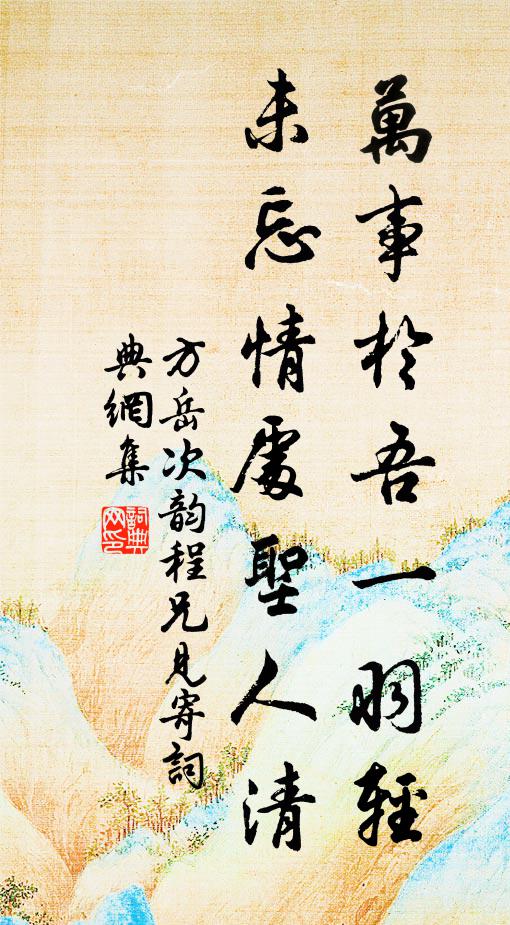 萬事於吾一羽輕
未忘情處聖人清
方岳次韵程兄見寄詞
典網集
詞典网印